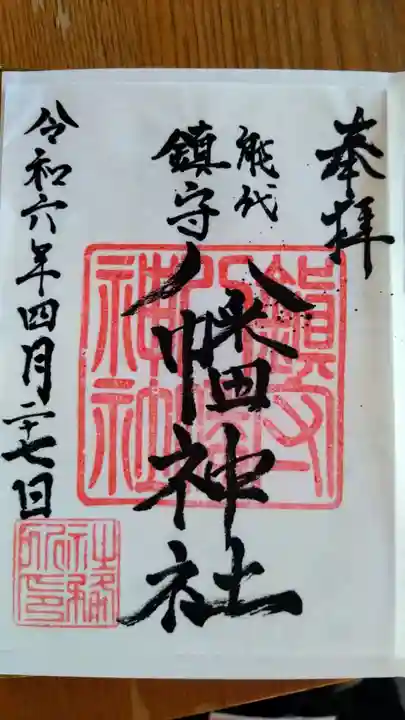 奉拝
能代
鎮守
八幡神社
令和六年四月二十七日
鎮守八幡神社
社務所印